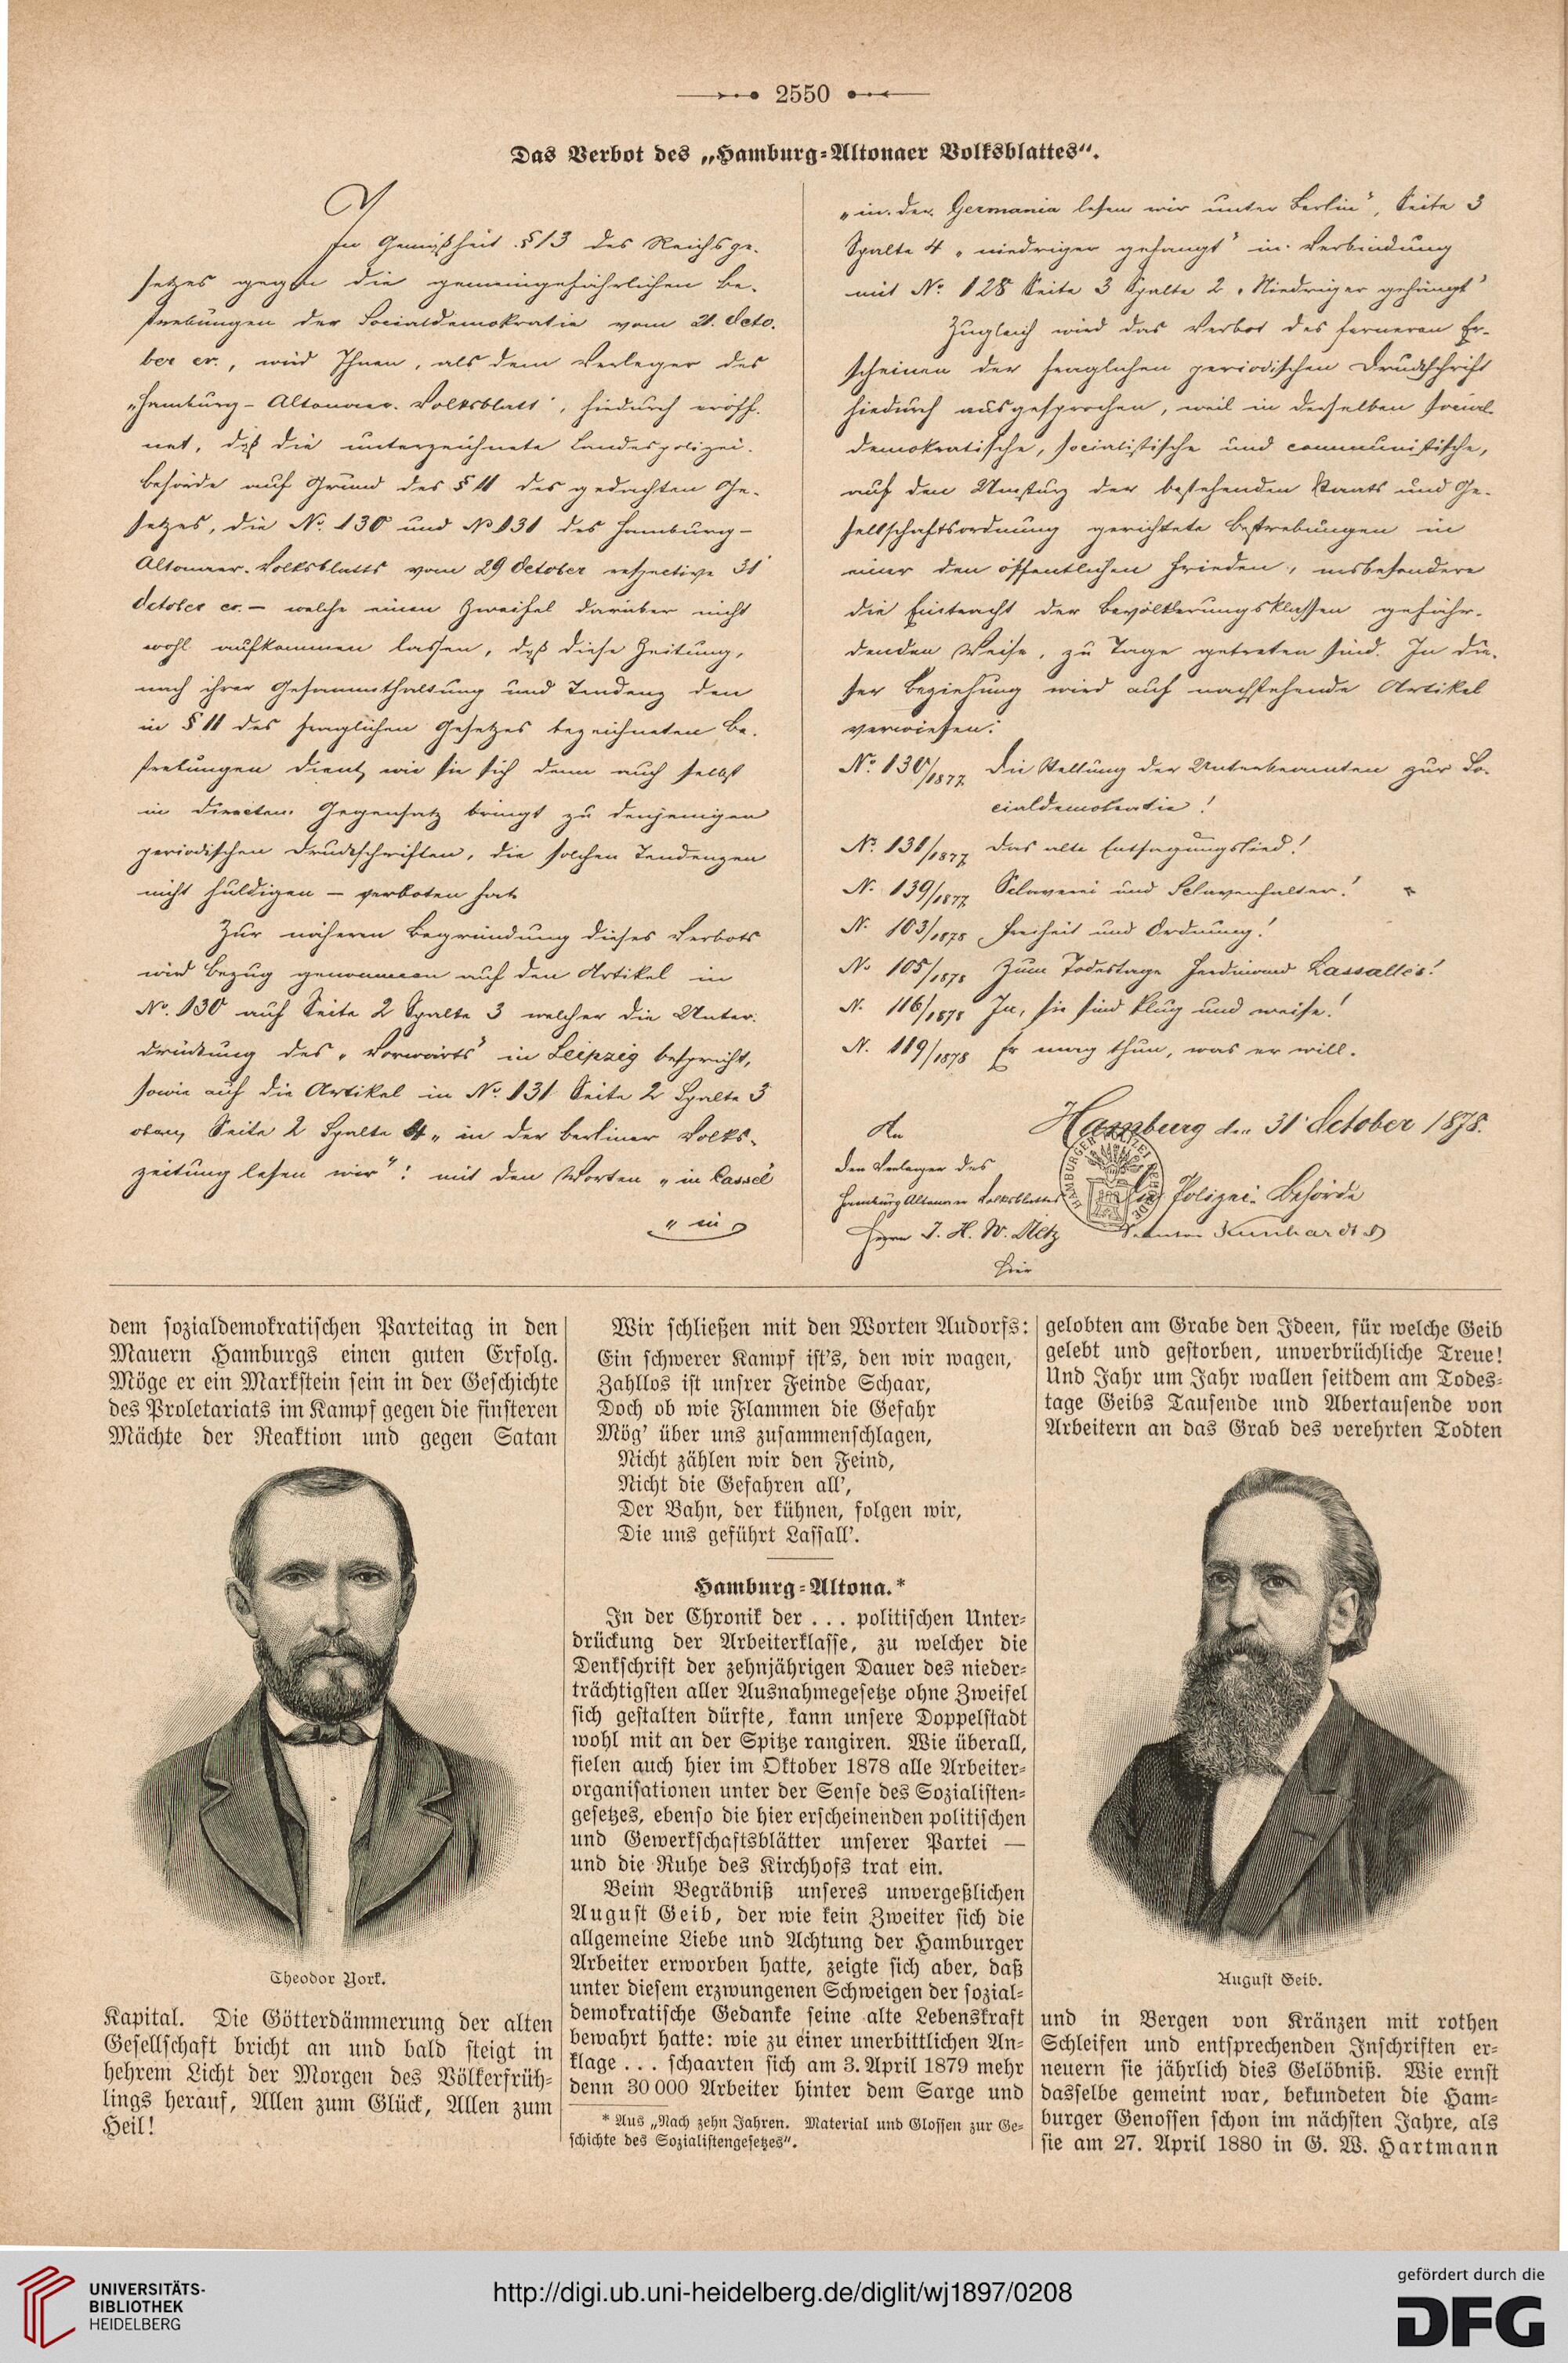 2550
Das Verbot des „Hamburg-Altonaer Volksblattes“.
In Gemäßheit §13 des Reichsge-
setzes gegen die gemeingefährlichen Be-
strebungen der Socialdemokratie vom 21. Octo-
ber cr., wird Ihnen, als dem Verleger des
„Hamburg-Altonaer Volksblatt“, hiedurch eröff-
net, daß die unterzeichnete Landespolizei-
behörde auf Grund des § 11 des gedachten Ge-
setzes, die No. 130 und No 131 des Hamburg-
Altonaer Volksblatts vom 29 October respective 31
October cr. – welche einen Zweifel darüber nicht
wohl aufkommen lassen, daß diese Zeitung,
nach ihrer Gesammthaltung und Tendenz den
in § 11 des fraglichen Gesetzes bezeichneten Be-
strebungen dient, wie sie sich denn auch selbst
in directen Gegensatz bringt zu denjenigen
periodischen Druckschriften, die solchen Tendenzen
nicht huldigen – verboten hat.
Zur näheren Begründung dieses Verbots
wird Bezug genommen auf den Artikel in
No. 130 auf Seite 2 Spalte 3 welcher die Unter-
drückung des „Vorwärts“ in Leipzig bespricht,
sowie auf die Artikel in No. 131 Seite 2 Spalte 3
oben, Seite 2 Spalte 4 „in der Berliner Volks-
zeitung lesen wir“: mit den Worten „in Cassel“
„in
„in der Germania lesen wir unter Berlin“, Seite 3
Spalte 4 „niedriger gehängt“ in Verbindung
mit No. 128 Seite 3 Spalte 2 „Niedriger gehängt“
Zugleich wird das Verbot des ferneren Er-
scheinen der fraglichen periodischen Druckschrift
hiedurch ausgesprochen, weil in derselben social-
demokratische, socialistische und communistische,
auf den Umsturz der bestehenden Staats und Ge-
sellschaftsordnung gerichtete Bestrebungen in
einer den öffentlichen Frieden, insbesondere
die Eintracht der Bevölkerungsklassen gefähr-
denden Weise, zu Tage getreten sind. In die-
ser Beziehung wird auf nachstehende Artikel
verwiesen:
No. 130/1877 Die Stellung der Unterbeamten zur So-
cialdemokratie!
No. 131/1877 Das alte Entsagungslied!
N. 139/1877 Sclaverei und Sclavenhalter!
N. 103/1878 Freiheit und Ordnung!
No 105/1878 Zum Todestage Ferdinand Lassalles!
N. 116/1878 Ja, sie sind klug und weise!
N. 119/1878 Er mag thun, was er will.
Hamburg den 31 October 1878.
An
den Verleger des
Hamburg Altonaer Volksblattes
Herrn J. H. W. Dietz
hier
HAMBURGER POLIZEI BEHÖRDE
Die Polizei-Behörde
Senator Kunhardt
dem sozialdemokratischen Parteitag in den
Mauern Hamburgs einen guten Erfolg.
Möge er ein Markstein sein in der Geschichte
des Proletariats im Kampf gegen die finsteren
Mächte der Reaktion und gegen Satan
Theodor York.
Kapital. Die Götterdämmerung der alten
Gesellschaft bricht an und bald steigt in
hehrem Licht der Morgen des Völkerfrüh-
lings herauf, Allen zum Glück, Allen zum
Heil!
Wir schließen mit den Worten Audorfs:
Ein schwerer Kampf ist's, den wir wagen,
Zahllos ist unsrer Feinde Schaar,
Doch ob wie Flammen die Gefahr
Mög' über uns zusammenschlagen,
Nicht zählen wir den Feind,
Nicht die Gefahren all',
Der Bahn, der kühnen, folgen wir,
Die uns geführt Lassall'.
Hamburg-Altona.*
In der Chronik der . . . politischen Unter-
drückung der Arbeiterklasse, zu welcher die
Denkschrift der zehnjährigen Dauer des nieder-
trächtigsten aller Ausnahmegesetze ohne Zweifel
sich gestalten dürfte, kann unsere Doppelstadt
wohl mit an der Spitze rangiren. Wie überall,
fielen auch hier im Oktober 1878 alle Arbeiter-
organisationen unter der Sense des Sozialisten-
gesetzes, ebenso die hier erscheinenden politischen
und Gewerkschaftsblätter unserer Partei —
und die Ruhe des Kirchhofs trat ein.
Beim Begräbniß unseres unvergeßlichen
August Geib, der wie kein Zweiter sich die
allgemeine Liebe und Achtung der Hamburger
Arbeiter erworben hatte, zeigte sich aber, daß
unter diesem erzwungenen Schweigen der sozial-
demokratische Gedanke seine alte Lebenskraft
bewahrt hatte: wie zu einer unerbittlichen An-
klage . . . schaarten sich am 3. April 1879 mehr
denn 30 000 Arbeiter hinter dem Sarge und
* Aus „Nach zehn Jahren. Material und Glossen zur Ge-
schichte des Sozialistengesetzes“.
gelobten am Grabe den Ideen, für welche Geib
gelebt und gestorben, unverbrüchliche Treue!
Und Jahr um Jahr wallen seitdem am Todes-
tage Geibs Tausende und Abertausende von
Arbeitern an das Grab des verehrten Todten
August Geib.
und in Bergen von Kränzen mit rothen
Schleifen und entsprechenden Inschriften er-
neuern sie jährlich dies Gelöbniß. Wie ernst
dasselbe gemeint war, bekundeten die Ham-
burger Genossen schon im nächsten Jahre, als
sie am 27. April 1880 in G. W. Hartmann
UNIVERSITÄTS-
BIBLIOTHEK
HEIDELBERG
http://digi.ub.uni-heidelberg.de/diglit/wj1897/0208
gefördert durch die
DFG